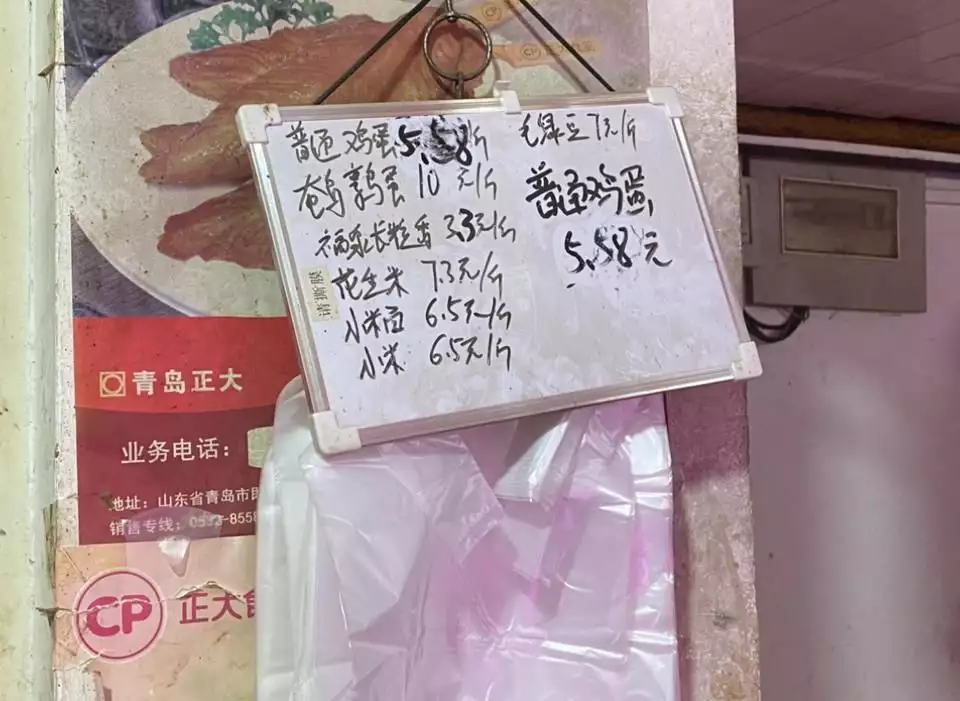 CP 正大食品
普通鸡蛋5.58斤
鹌鹑蛋 10元/斤
福泉长粒香 3.3元/斤
花生米 7.3元/斤
小米面 6.5元/斤
小米 6.5元/斤
请撕膜
毛绿豆7元/斤
普通鸡蛋
5.58元
青岛正大
业务电话：
地址：山东省青岛市即
销售专线：0532-8558
CP 正大食